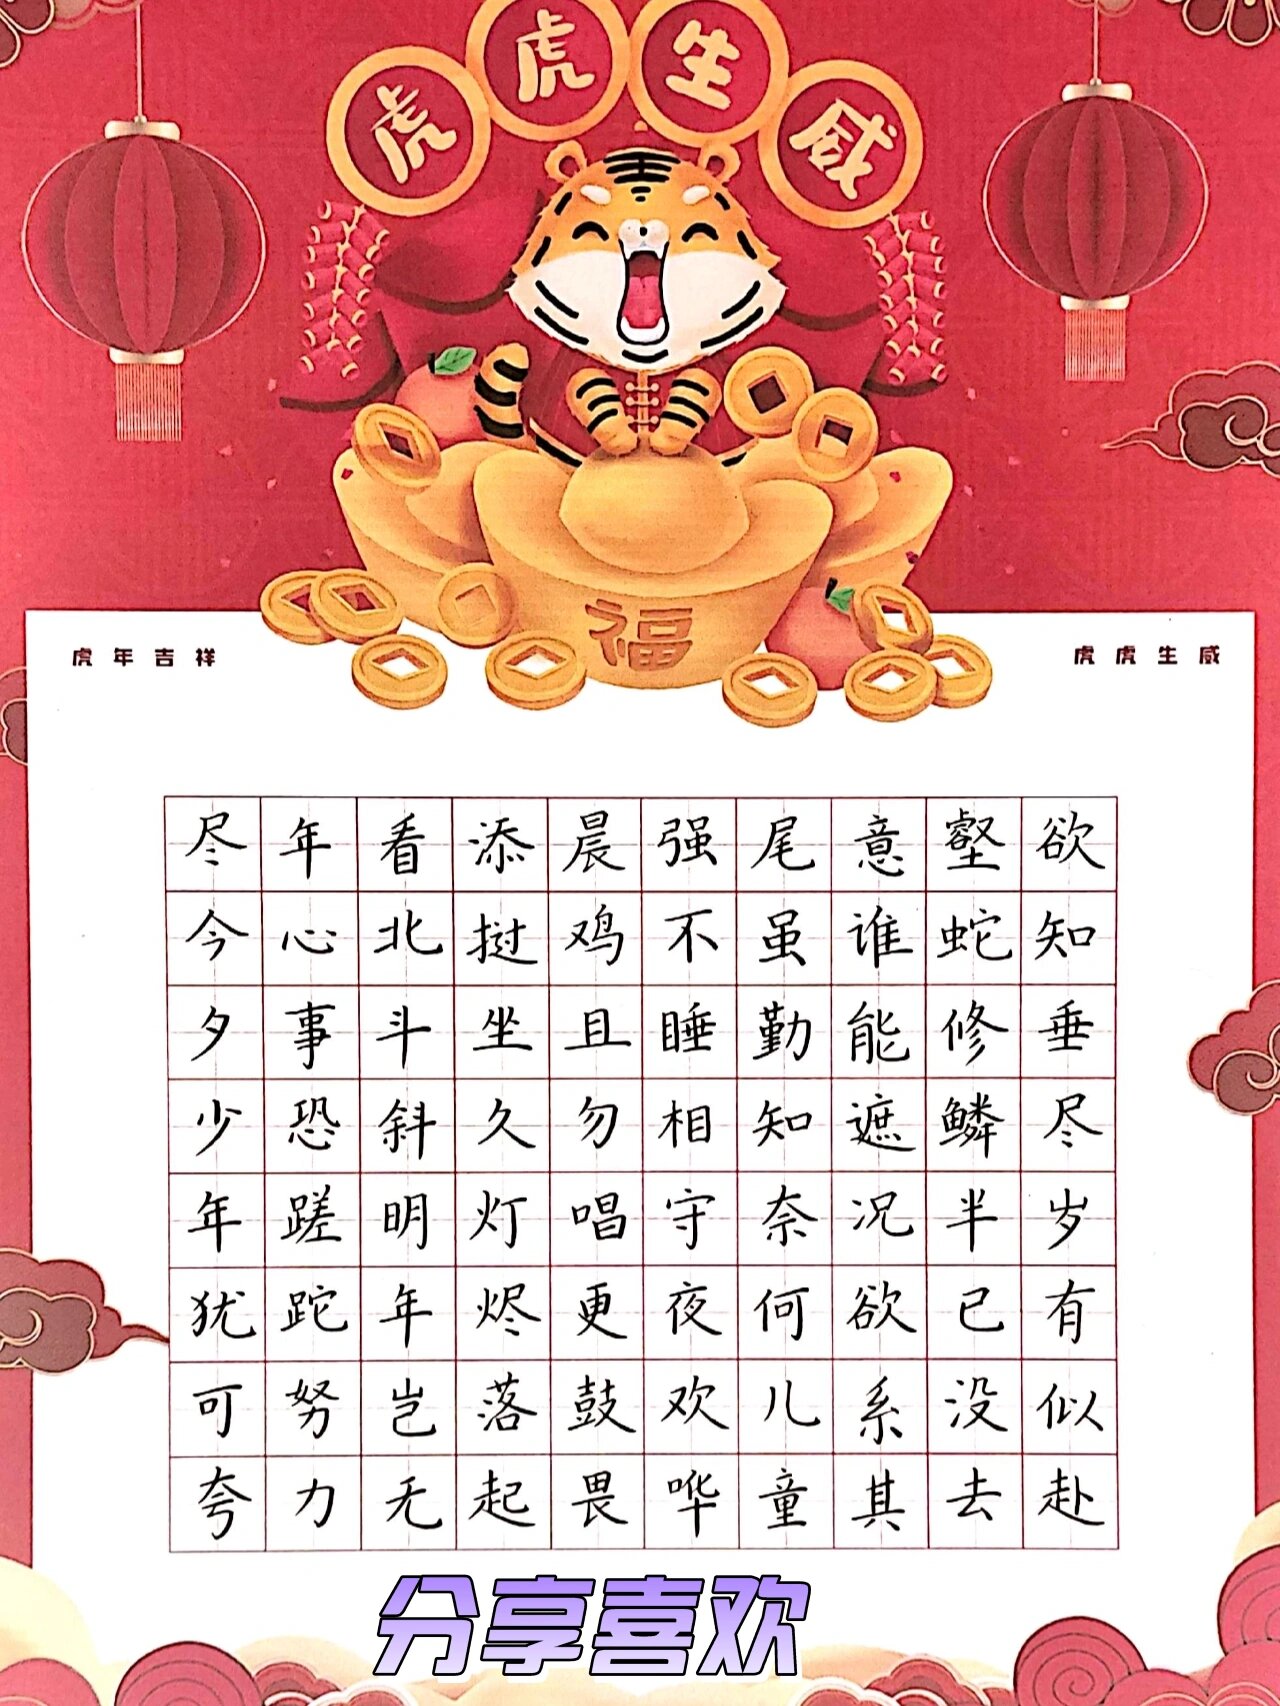 虎虎生威
福
虎年吉祥
虎虎生威
欲知垂尽岁有似赴
壑蛇修鳞半已没去
意谁能遮况欲系其
尾虽勤知奈何儿童
强不睡相守夜欢哗
晨鸡且勿唱更鼓畏
添挝坐久灯烬落起
看北斗斜明年岂无
年心事恐蹉跎努力
尽今夕少年犹可夸
分享喜欢